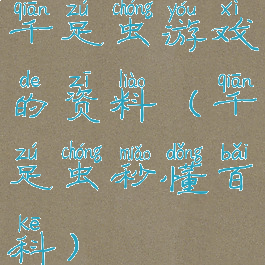 qiān zú chóng yóu xì
千足虫游戏
de zī liào qiān
的资料（千
zú chóng miǎo dǒng bǎi
足虫秒懂百
kē
科）